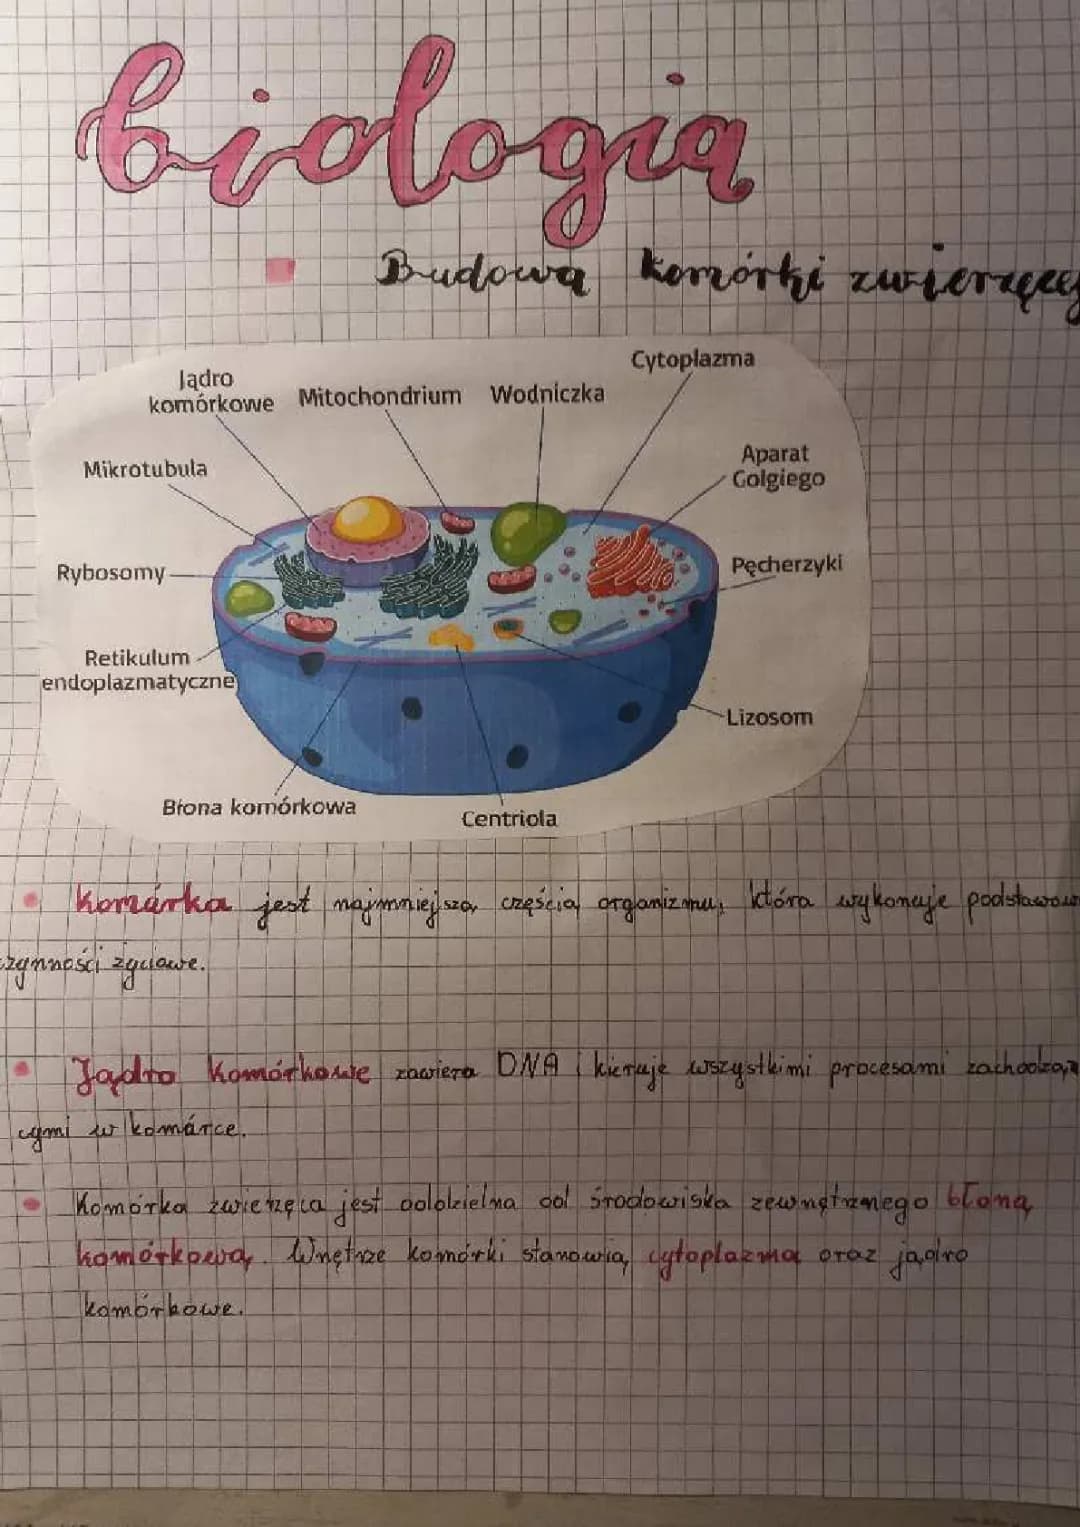 biologia
Budowa komórki zwierzęcej
Cytoplazma
Jądro
komórkowe
Mitochondrium
Wodniczka
Mikrotubula
Aparat
Golgiego
Rybosomy
Pęcherzyki
Retikulum
endoplazmatyczne
Lizosom
Błona komórkowa
Centriola
Komórka jest najmniejszą częścią organizmu, która wykonuje podstawow
czynności życiowe.
Jądro komórkowe zawiera DNA i kieruje wszystkimi procesami zachodzą
cymi w komórce.
Komórka zwierzęca jest oddzielna od środowiska zewnętrznego błoną
komórkową. Wnętrze komórki stanowią cytoplazma oraz jądro
komórkowe.